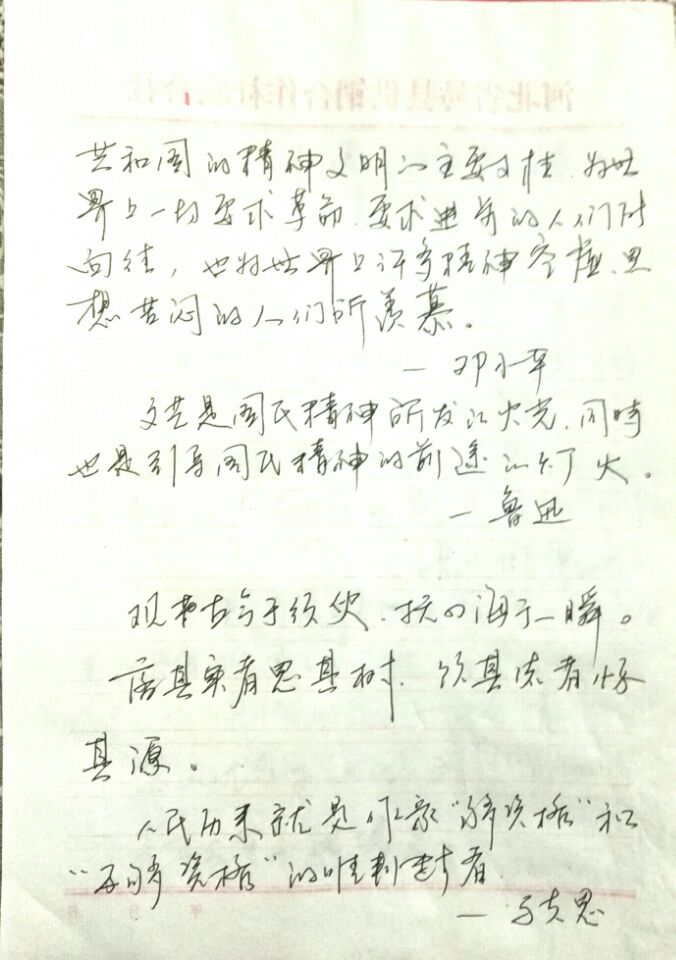 共和国的精神文明的主要支柱，为世
界上一切要求革命、要求进步的人们所
向往，也为世界上许多精神空虚、思
想苦闷的人们所羡慕。
— 邓小平
文艺是国民精神所发的火光，同时
也是引导国民精神的前途的灯火。
— 鲁迅
观古今于须臾，抚四海于一瞬。
落其实者思其树，饮其流者怀
其源。
人民历来就是作家“够资格”和
“不够资格”的唯一判断者
— 马克思